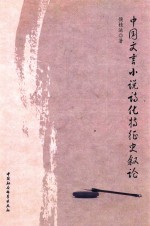 中国文言小说诗化特征史叙论
著
中国社会科学出版社